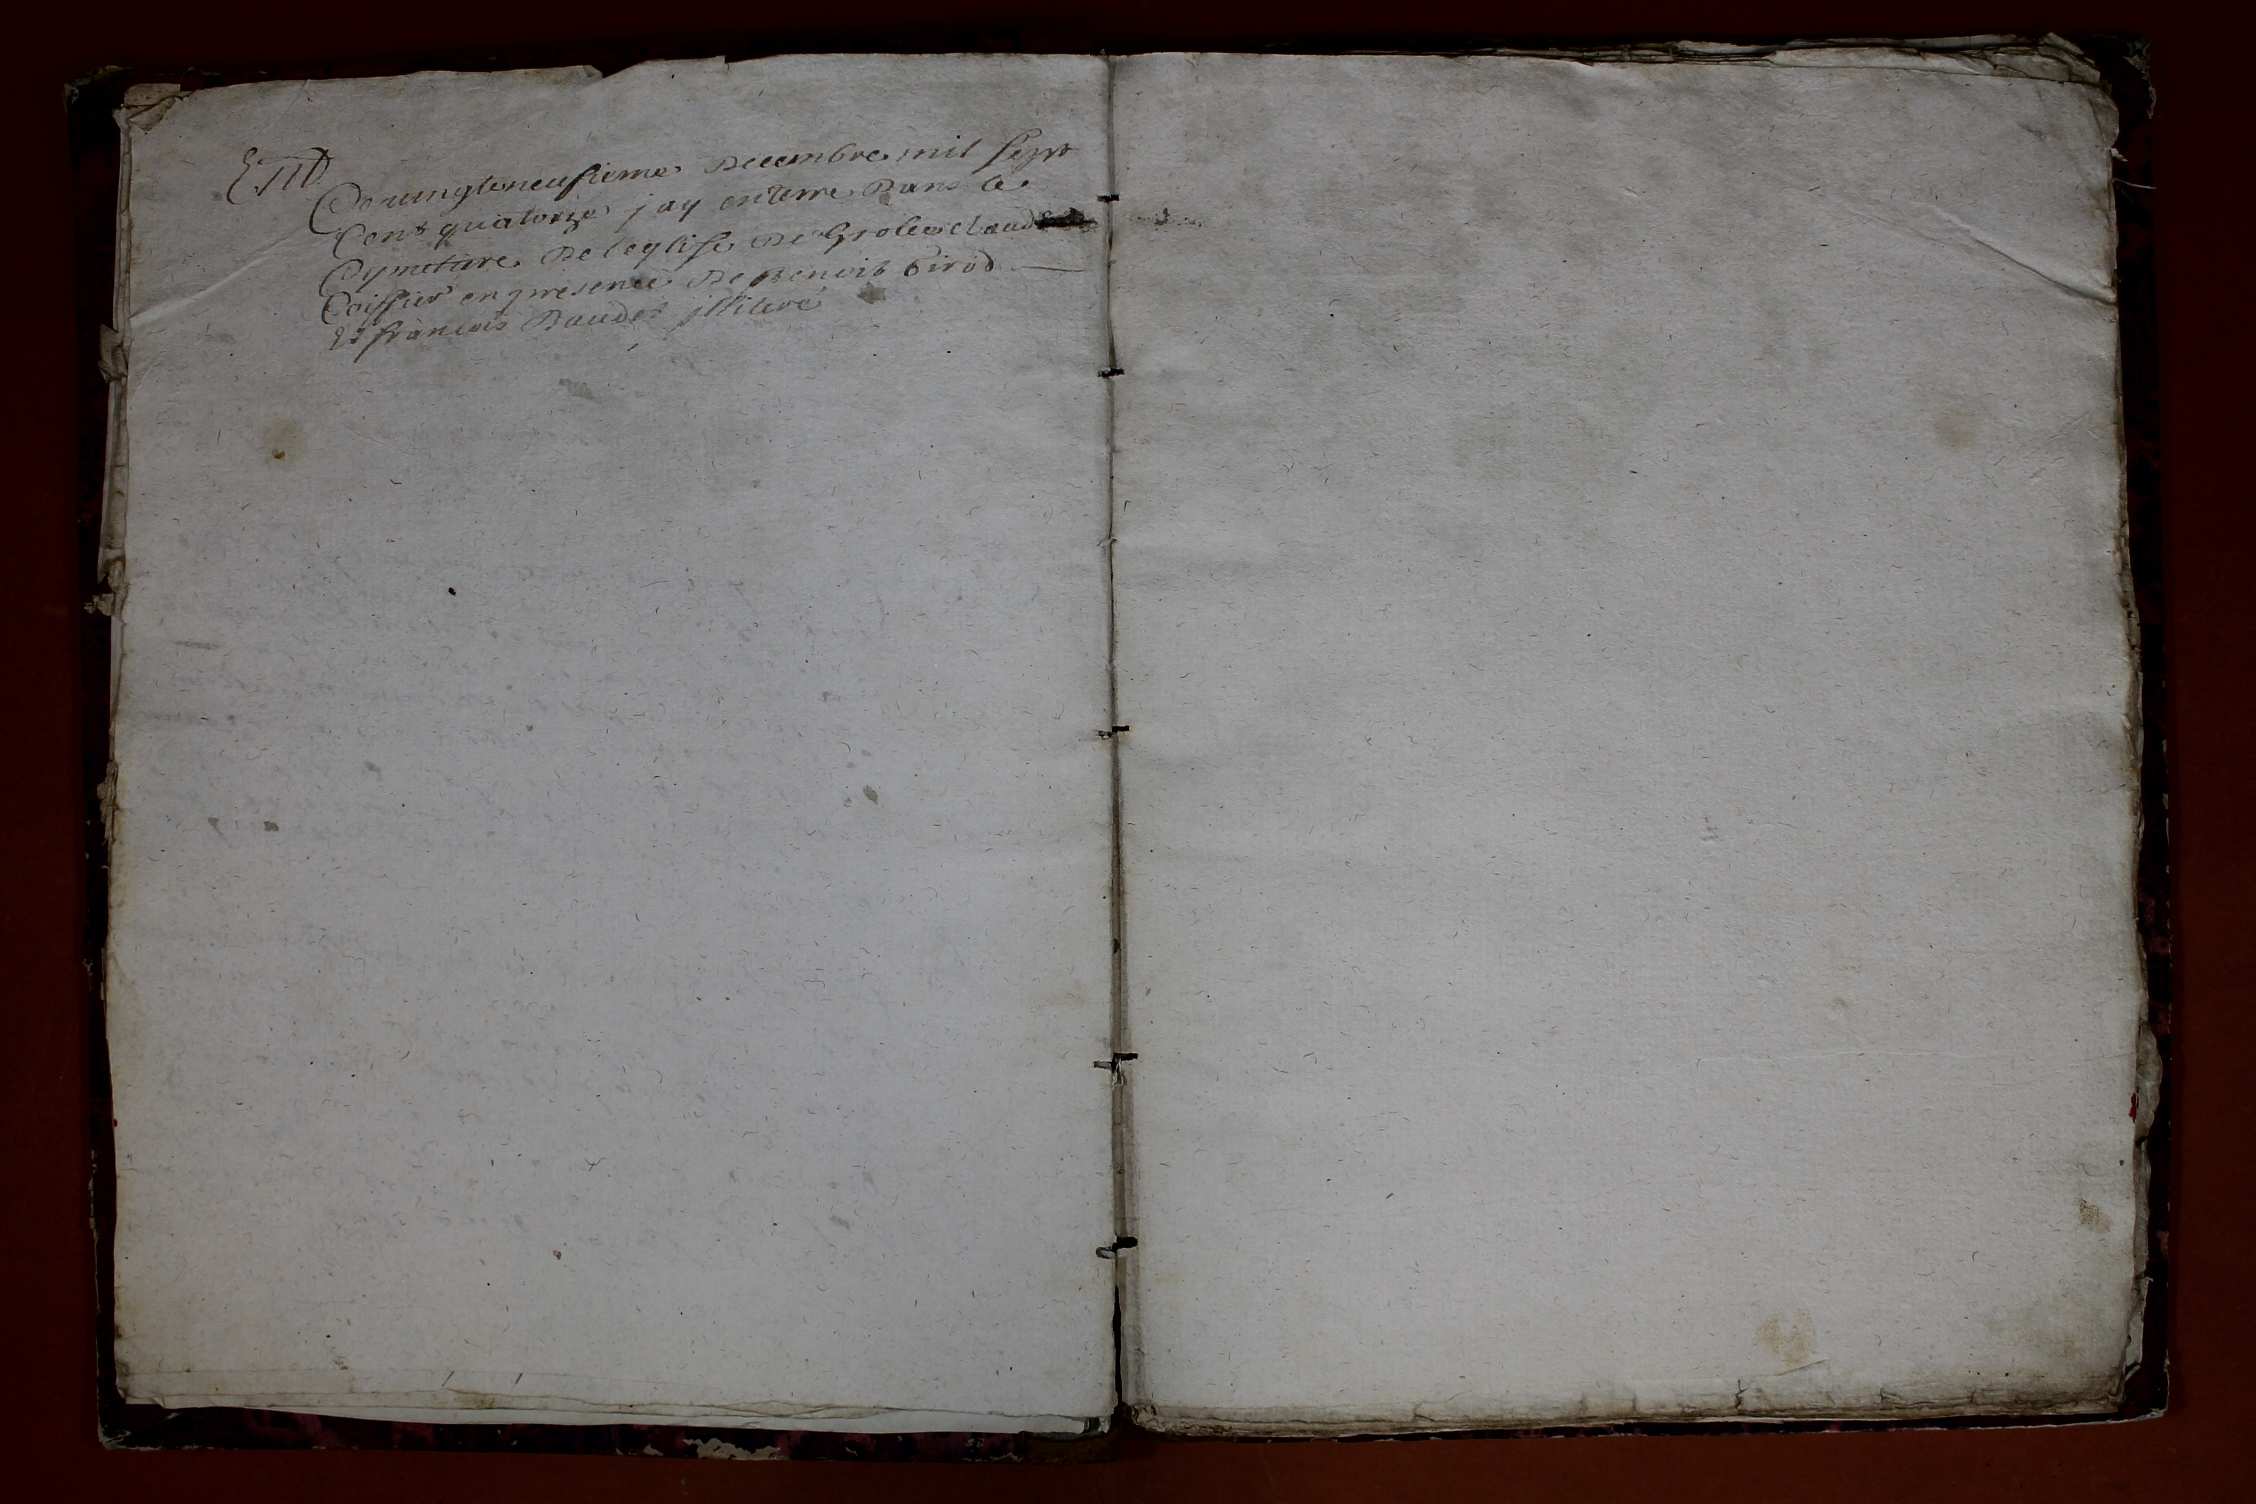 Ce vingteneufieme Decembre mil sept
Cent quatorze jay enterre Dans le
Cymetiere De leglise De Groleo claude
Coissier en presence De Benoit Girod
Et françois Baudet illiteré